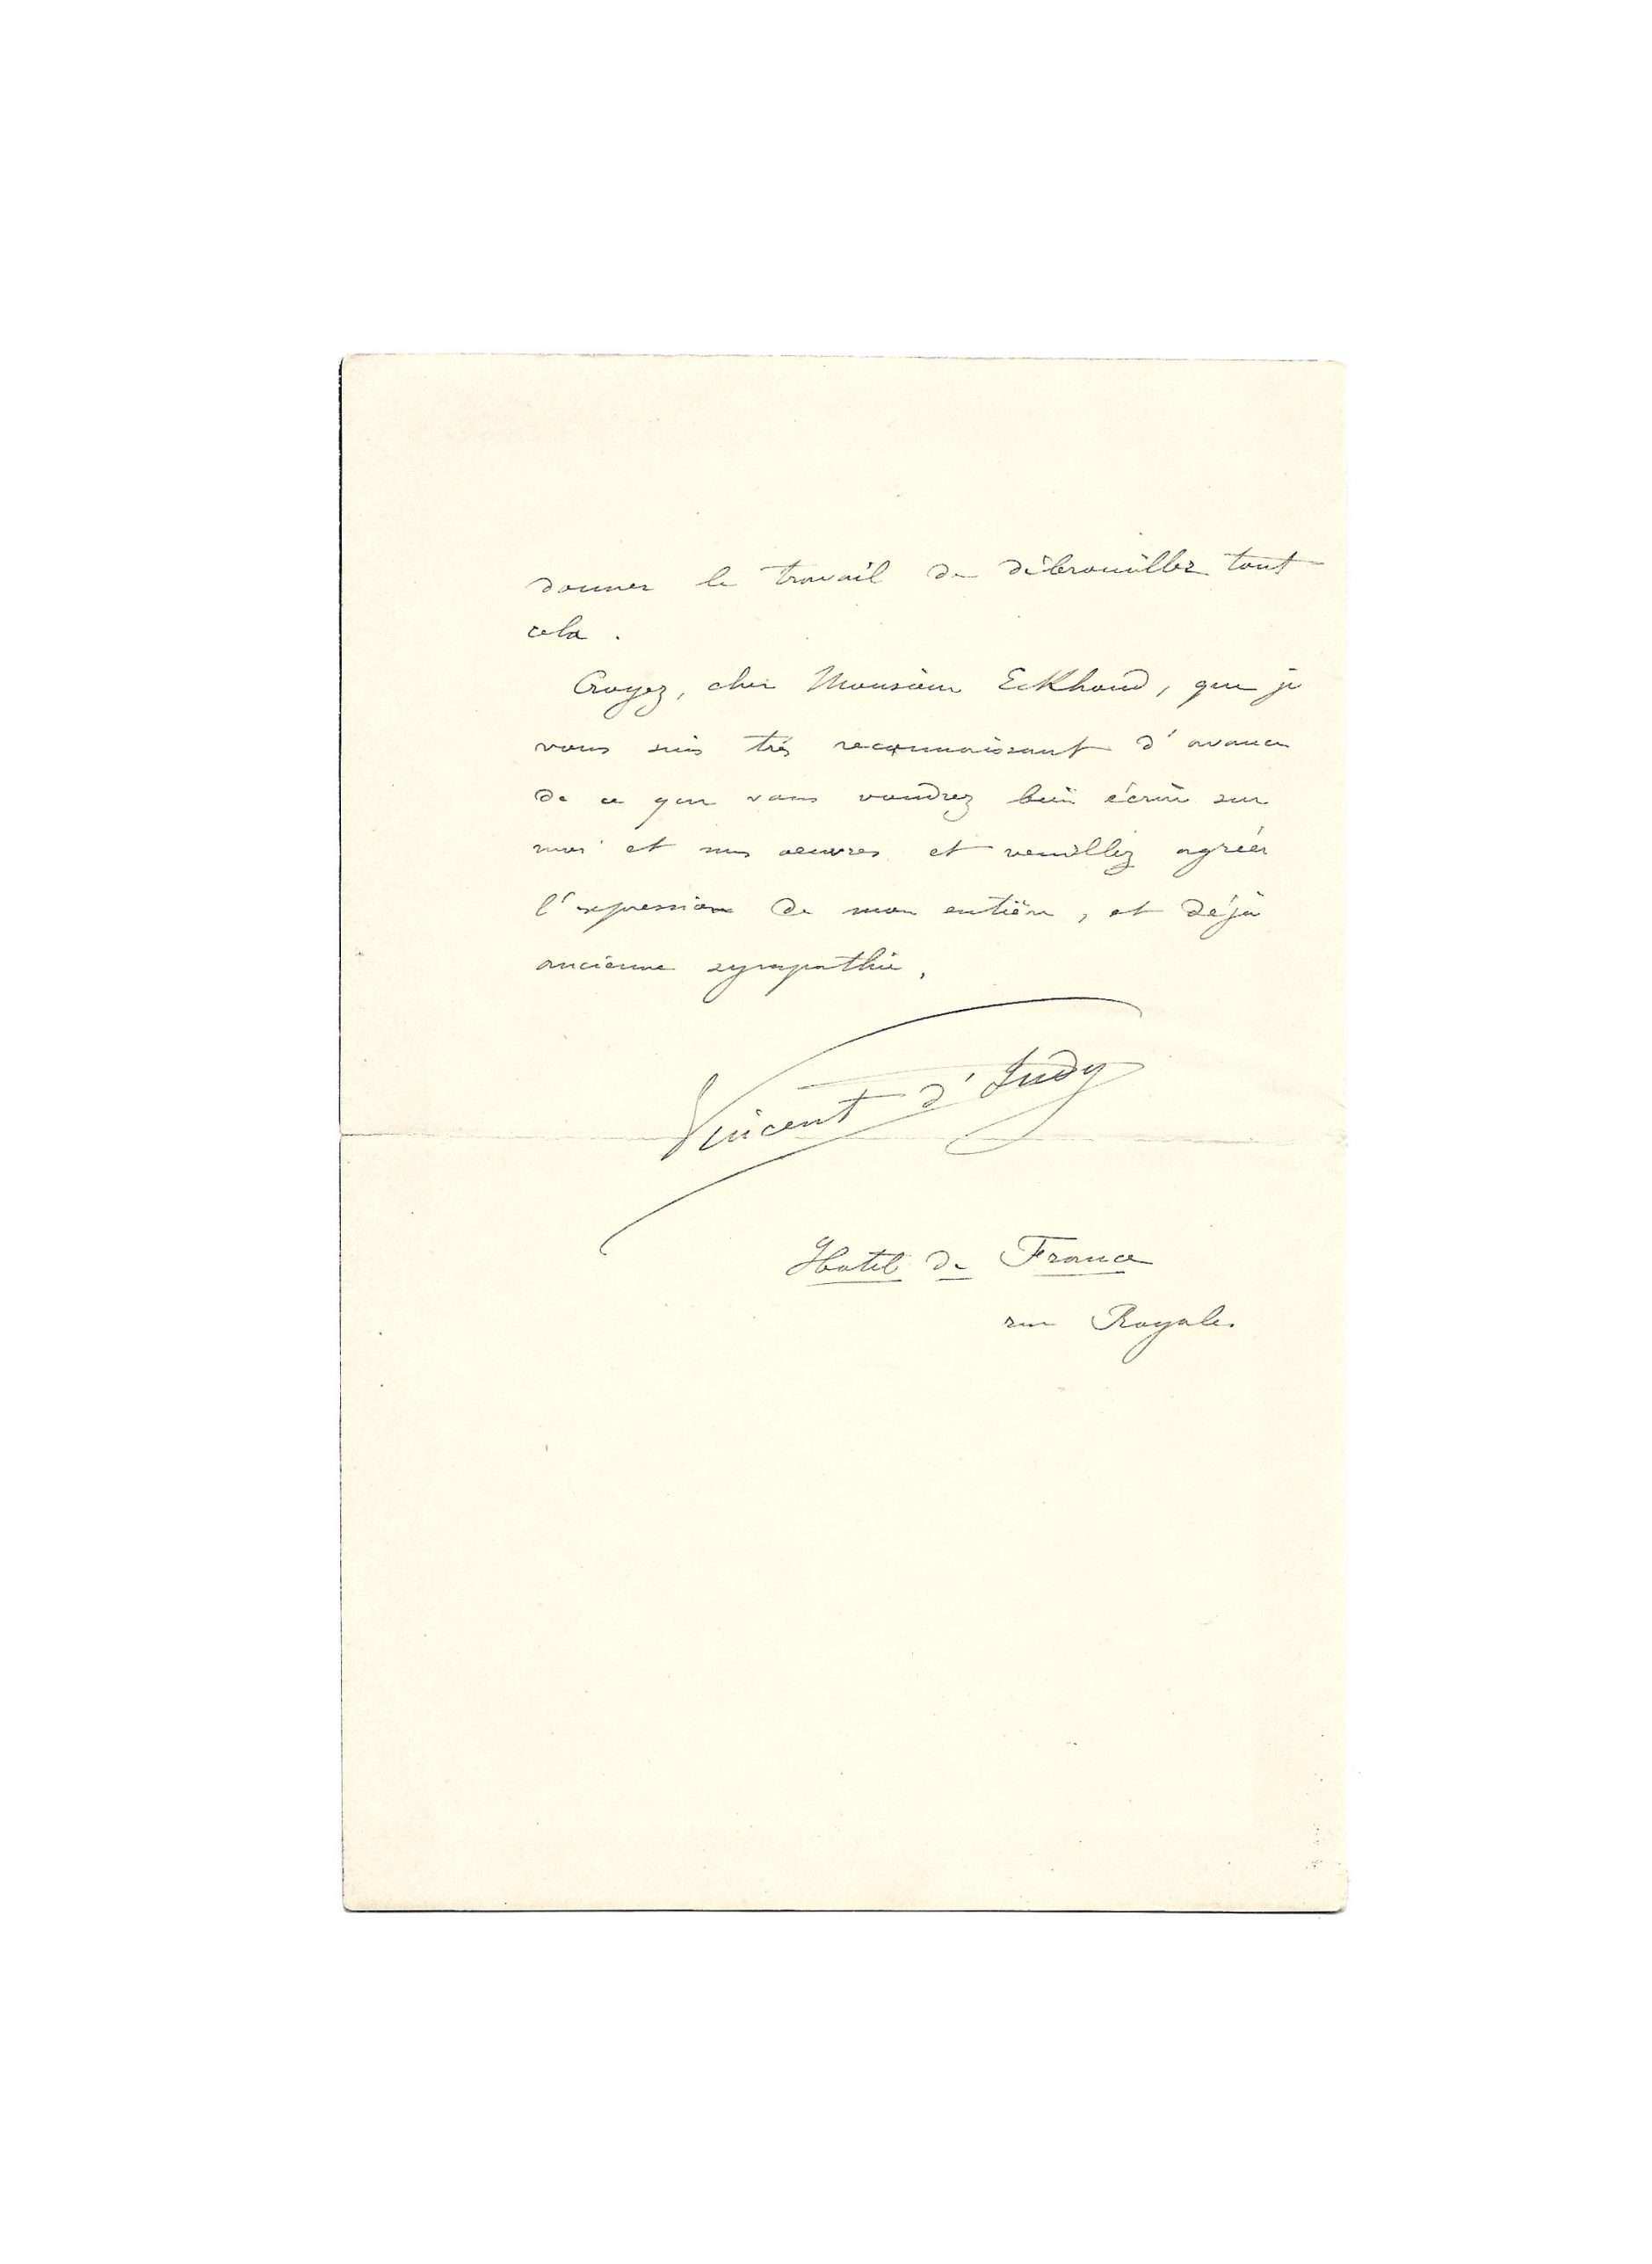 donner le travail de débrouiller tout
cela.
Croyez, cher Monsieur Eckhoud, que je
vous suis très reconnaissant d'avance
de ce que vous voudrez bien écrire sur
moi et mes œuvres et veuillez agréer
l'expression de mon entière, et déjà
ancienne sympathie.
Vincent d'Indy
Hotel de France
rue Royale.